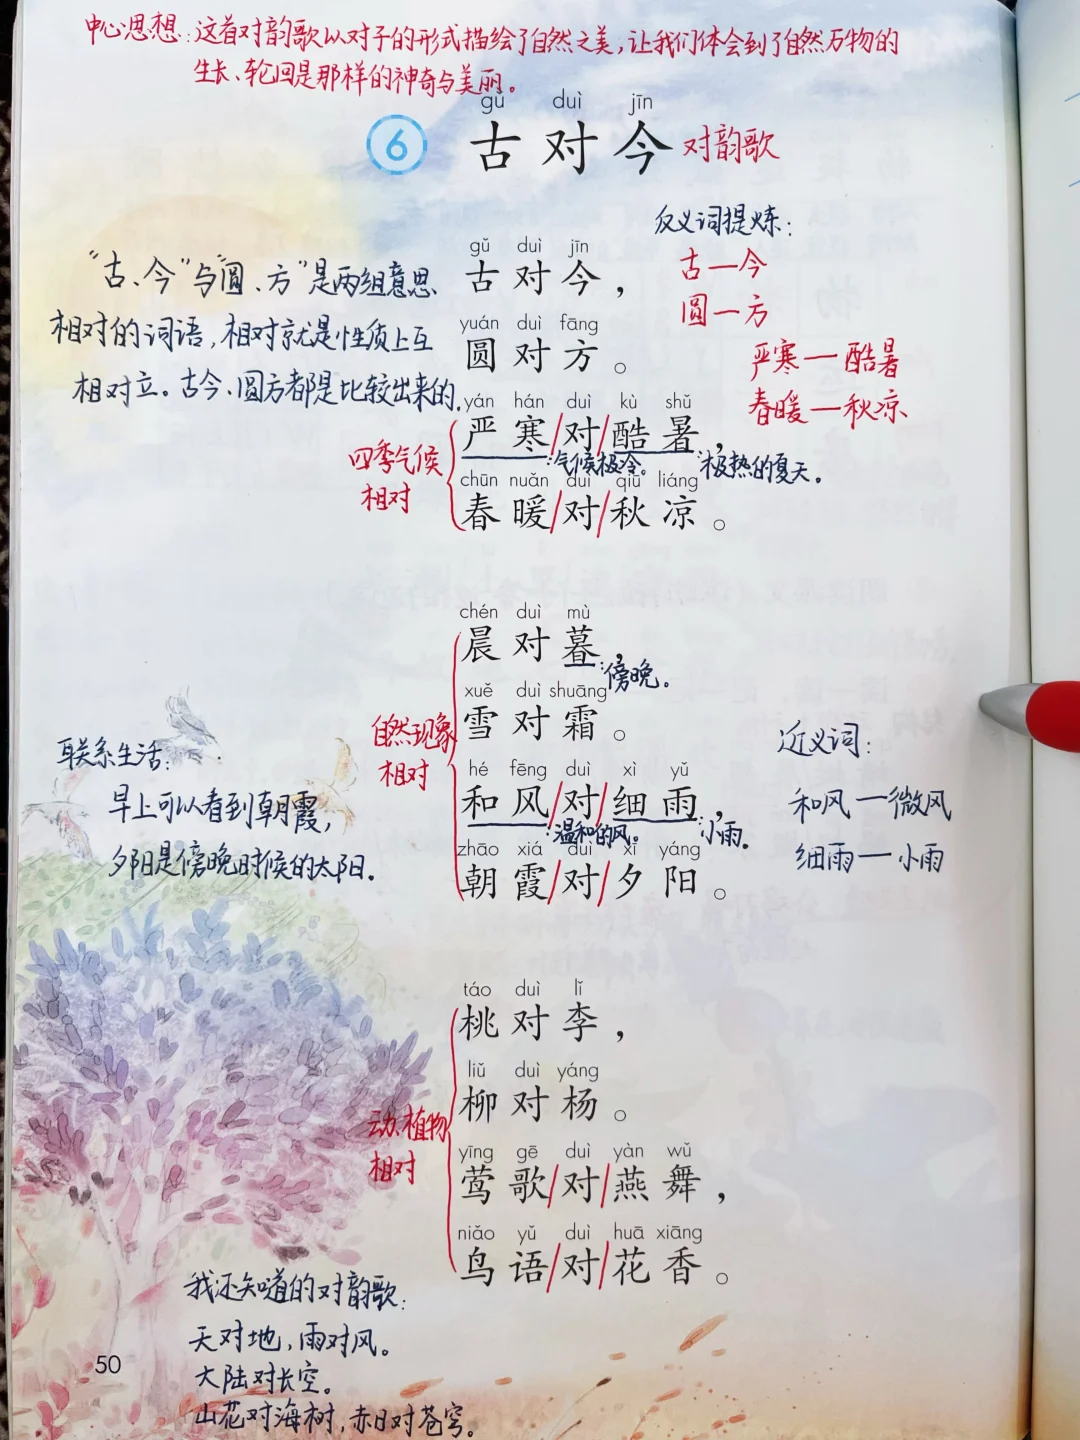 中心思想:这首对韵歌以对子的形式描绘了自然之美,让我们体会到了自然万物的
生长、轮回是那样的神奇与美丽。
gǔ duì jīn
6 古对今 对韵歌
反义词提炼:
古—今
圆—方
严寒—酷暑
春暖—秋凉
“古、今”与“圆、方”是两组意思
相对的词语,相对就是性质上互
相对立。古今、圆方都是比较出来的.
gǔ duì jīn
古对今,
yuán duì fāng
圆对方。
四季气候
相对
yán hán duì kù shǔ
严寒/对/酷暑,
:气候极冷。 :极热的夏天。
chūn nuǎn duì qiū liáng
春暖/对/秋凉。
chén duì mù
晨对暮,
:傍晚。
xuě duì shuāng
雪对霜。
自然现象
相对
hé fēng duì xì yǔ
和风/对/细雨,
:温和的风。 :小雨。
zhāo xiá duì xī yáng
朝霞/对/夕阳。
联系生活:
早上可以看到朝霞,
夕阳是傍晚时候的太阳.
近义词:
和风—微风
细雨—小雨
táo duì lǐ
桃对李,
liǔ duì yáng
柳对杨。
动、植物
相对
yīng gē duì yàn wǔ
莺歌/对/燕舞,
niǎo yǔ duì huā xiāng
鸟语/对/花香。
我还知道的对韵歌:
天对地,雨对风。
大陆对长空。
山花对海树,赤日对苍穹。
50